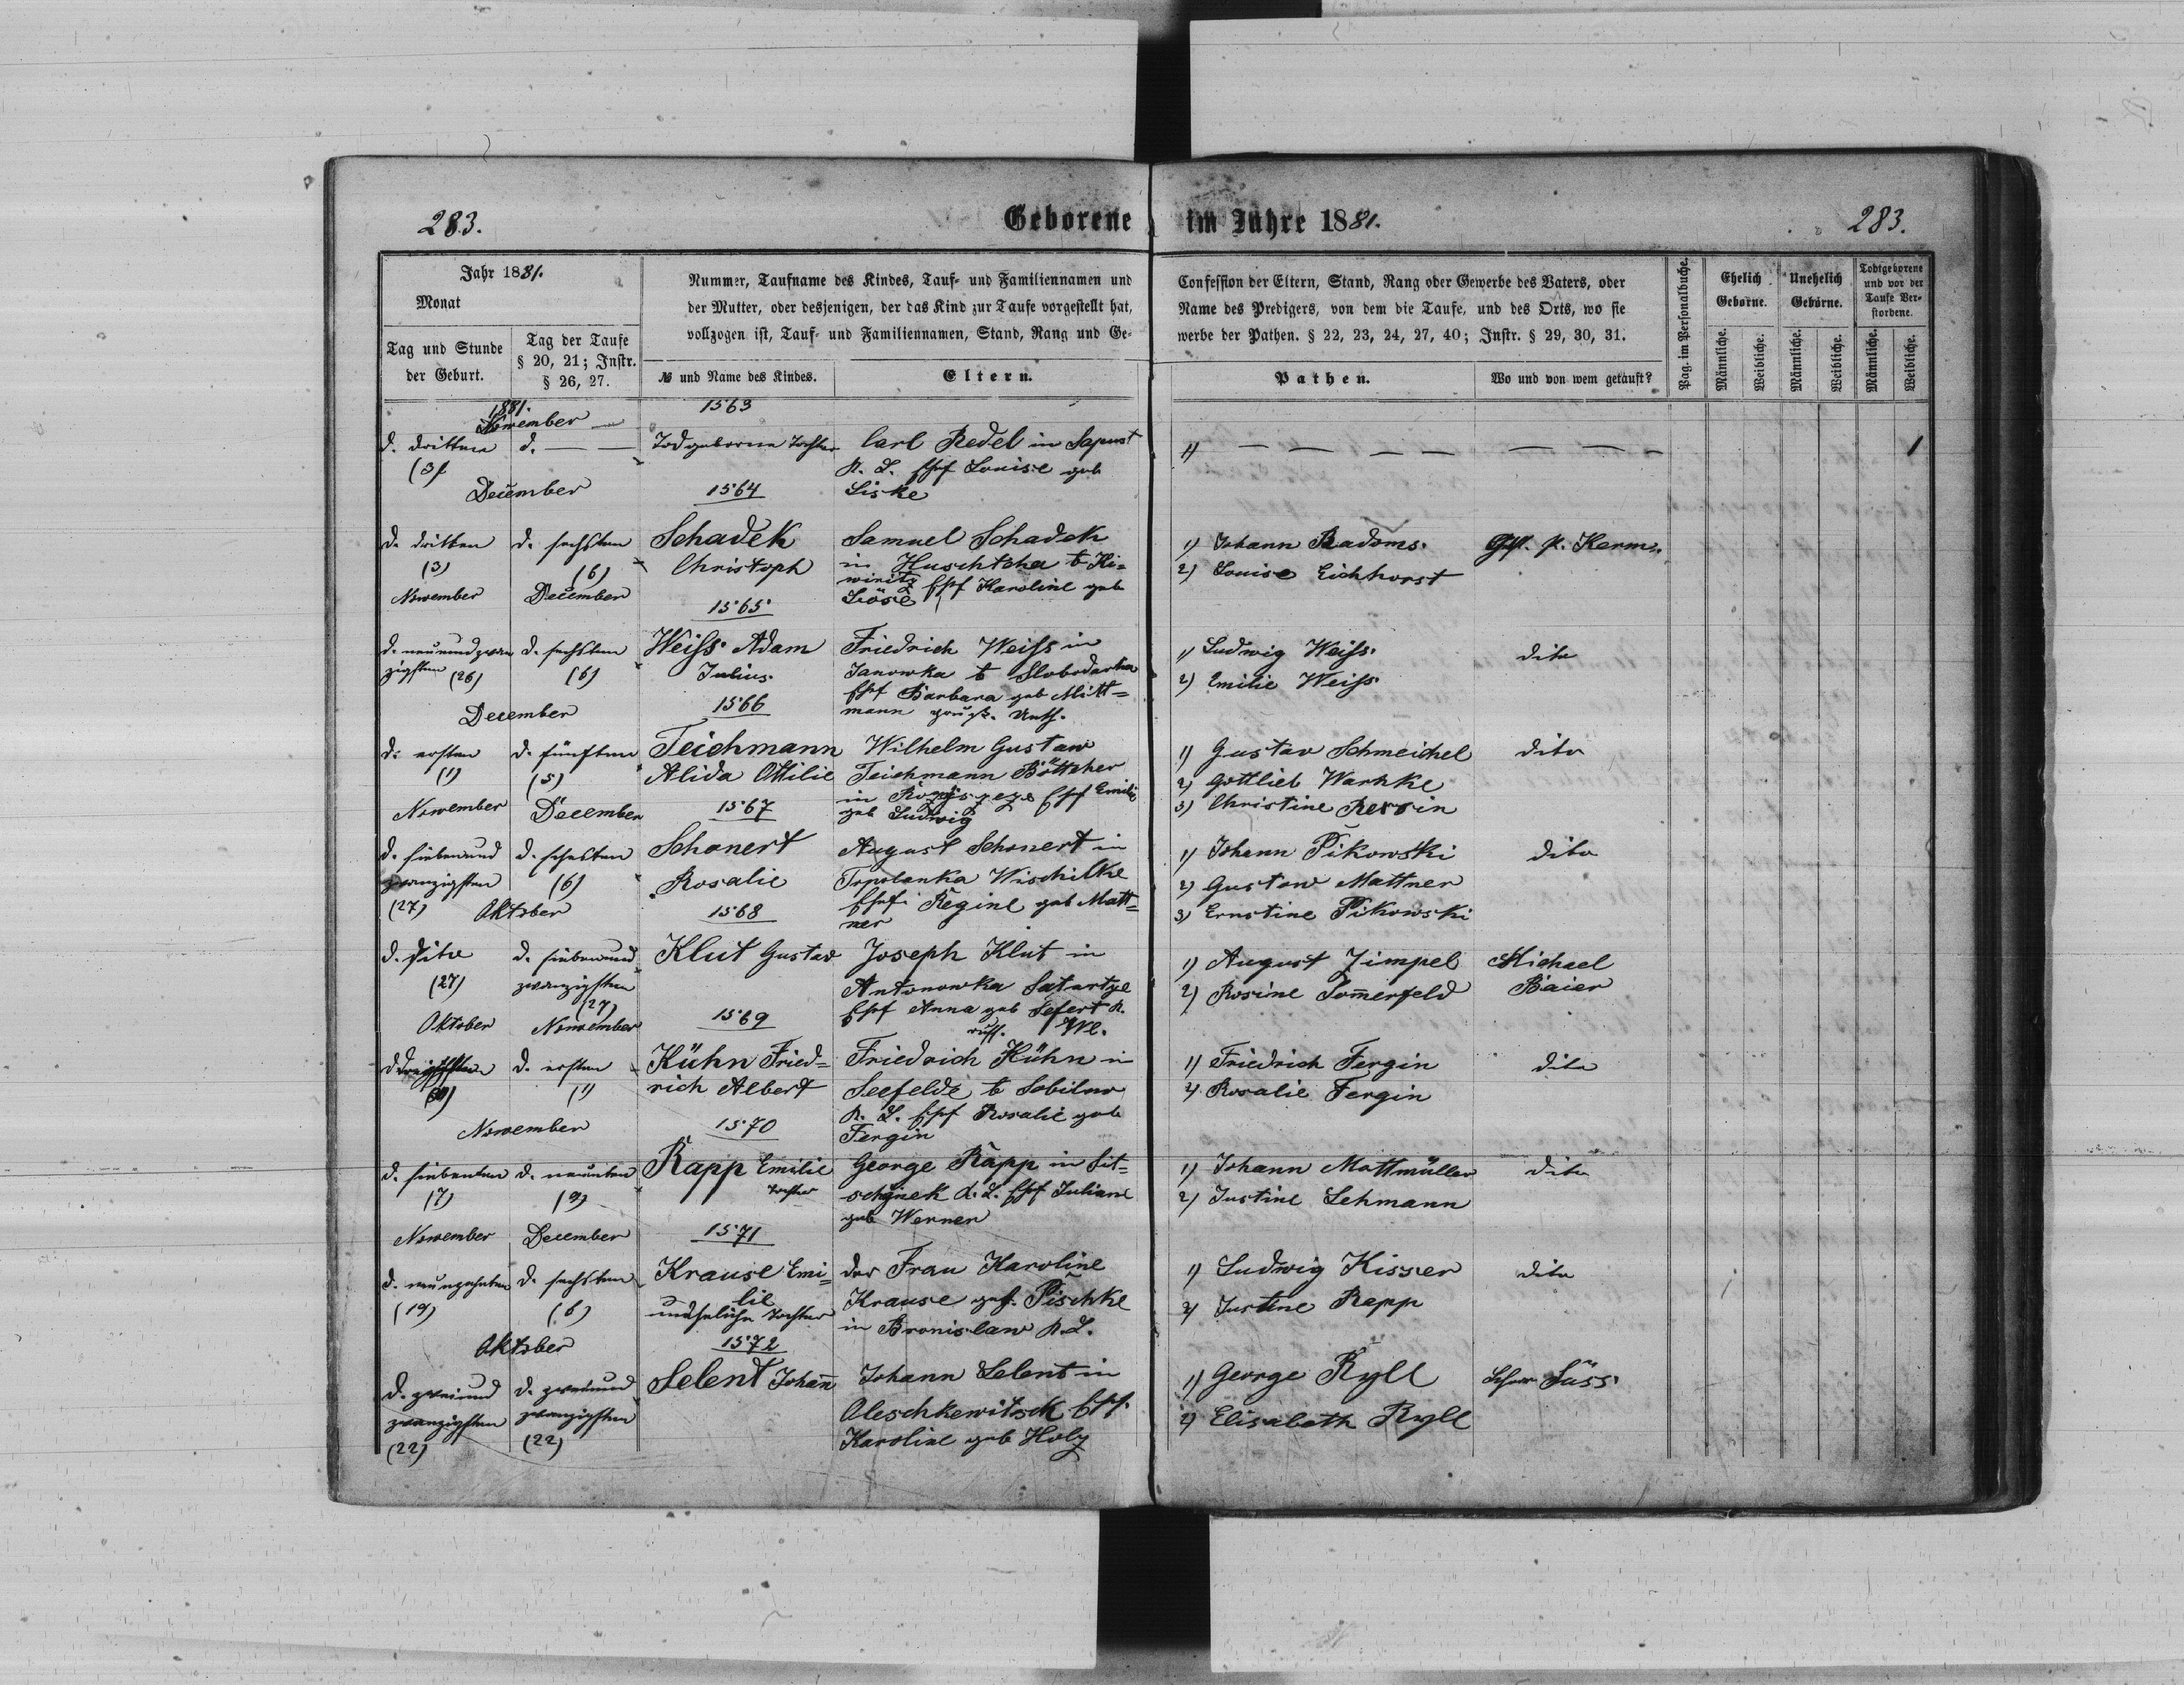 283.
Geborene im Jahre 1881.
283.
Jahr 1881.
Monat
Tag und Stunde der Geburt.
Tag der Taufe § 20, 21; Instr. § 26, 27.
Nummer, Taufname des Kindes, Tauf- und Familiennamen und
der Mutter, oder desjenigen, der das Kind zur Taufe vorgestellt hat,
vollzogen ist, Tauf- und Familiennamen, Stand, Rang und Ge-
№ und Name des Kindes.
Eltern.
Confession der Eltern, Stand, Rang oder Gewerbe des Vaters, oder
Name des Predigers, von dem die Taufe, und des Orts, wo sie
werbe der Pathen. § 22, 23, 24, 27, 40; Instr. § 29, 30, 31.
Pathen.
Wo und von wem getauft?
Pag. im Personalbuche.
Ehelich Geborne.
Unehelich Geborne.
Todtgeborene und vor der Taufe Verstordene.
Männliche.
Weibliche.
Männliche.
Weibliche.
Männliche.
Weibliche.
1881.
November
1563
d. dritten
d. — —
Todgeborene Tochter
Carl Redel in Sapust
1) — — — — — — —
1
(3)
Louise geb
December
1564
Liske
d. dritten
d. sechsten
Schadek
Samuel Schadek
1) Johann Radoms.
(3)
(6)
Christoph
in Huschtcha b Ki=
2) Louise Eichhorst
November
December
winitz Karoline geb
1565
Liöse
d. neunundzwan
d. sechsten
Weiss Adam
Friedrich Weiss in
1) Ludwig Weiss.
dito
zigsten (26)
(6)
Julius.
Janowka b Slobodarka
2) Emilie Weiss
Barbara geb Mitt=
December
1566
mann
d. ersten
d. fünften
Teichmann
Wilhelm Gustaw
1) Gustav Schmeichel
dito
(1)
(5)
Alida Ottilie
Teichmann Böttcher
2) Gottlieb Warnke
in Emilie
3) Christine Ressin
November
December
1567
geb Ludwig
d. siebenund
d. sechsten
Schonert
August Schonert in
1) Johann Pikowski
dito
zwanzigsten
(6)
Rosalie
Topolanka Wischilke
2) Gustaw Mattner
(27)
Regine geb Matt=
3) Ernstine Pikowski
Oktober
1568
ner
d. dito
d. siebenund
Klut Gustav
Joseph Klut in
1) August Zimpel
Michael
(27)
zwanzigsten
Antonowka Saturtze
2) Rosine Sommerfeld
Baier
(27)
Anna geb Sefert
Oktober
November
1569
d. dreißigsten
d. ersten
Kühn Fried=
Friedrich Kühn in
1) Friedrich Fergin
dito
(30)
(1)
rich Albert
Seefelde b Sobilno
2) Rosalie Fergin
Rosalie geb
November
1570
Fergin
d. siebenten
d. neunten
Rapp Emilie
George Rapp in Sit=
1) Johann Mattmüller
dito
(7)
(9)
Tochter
Juliane
2) Justine Lehmann
November
December
1571
geb Werner
d. neunzehnten
d. sechsten
Krause Emi=
der Frau Karoline
1) Ludwig Kisser
dito
(19)
(6)
lie
Krause geb. Pischke
2) Justine Rapp
uneheliche Tochter
in Bronislaw
Oktober
1572
d. zweiund
d. zweiund
Selent Johann
Johann Selent in
1) George Ryll
Süss
zwanzigsten
zwanzigsten
Oleschkewitsch
2) Elisabeth Ryll
(22)
(22)
Karoline geb Holz